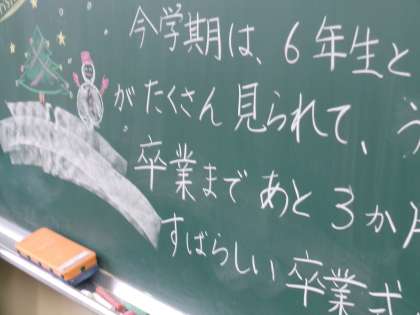 今学期は、6年生と
がたくさん見られて、う
卒業まであと3か月
すばらしい卒業式